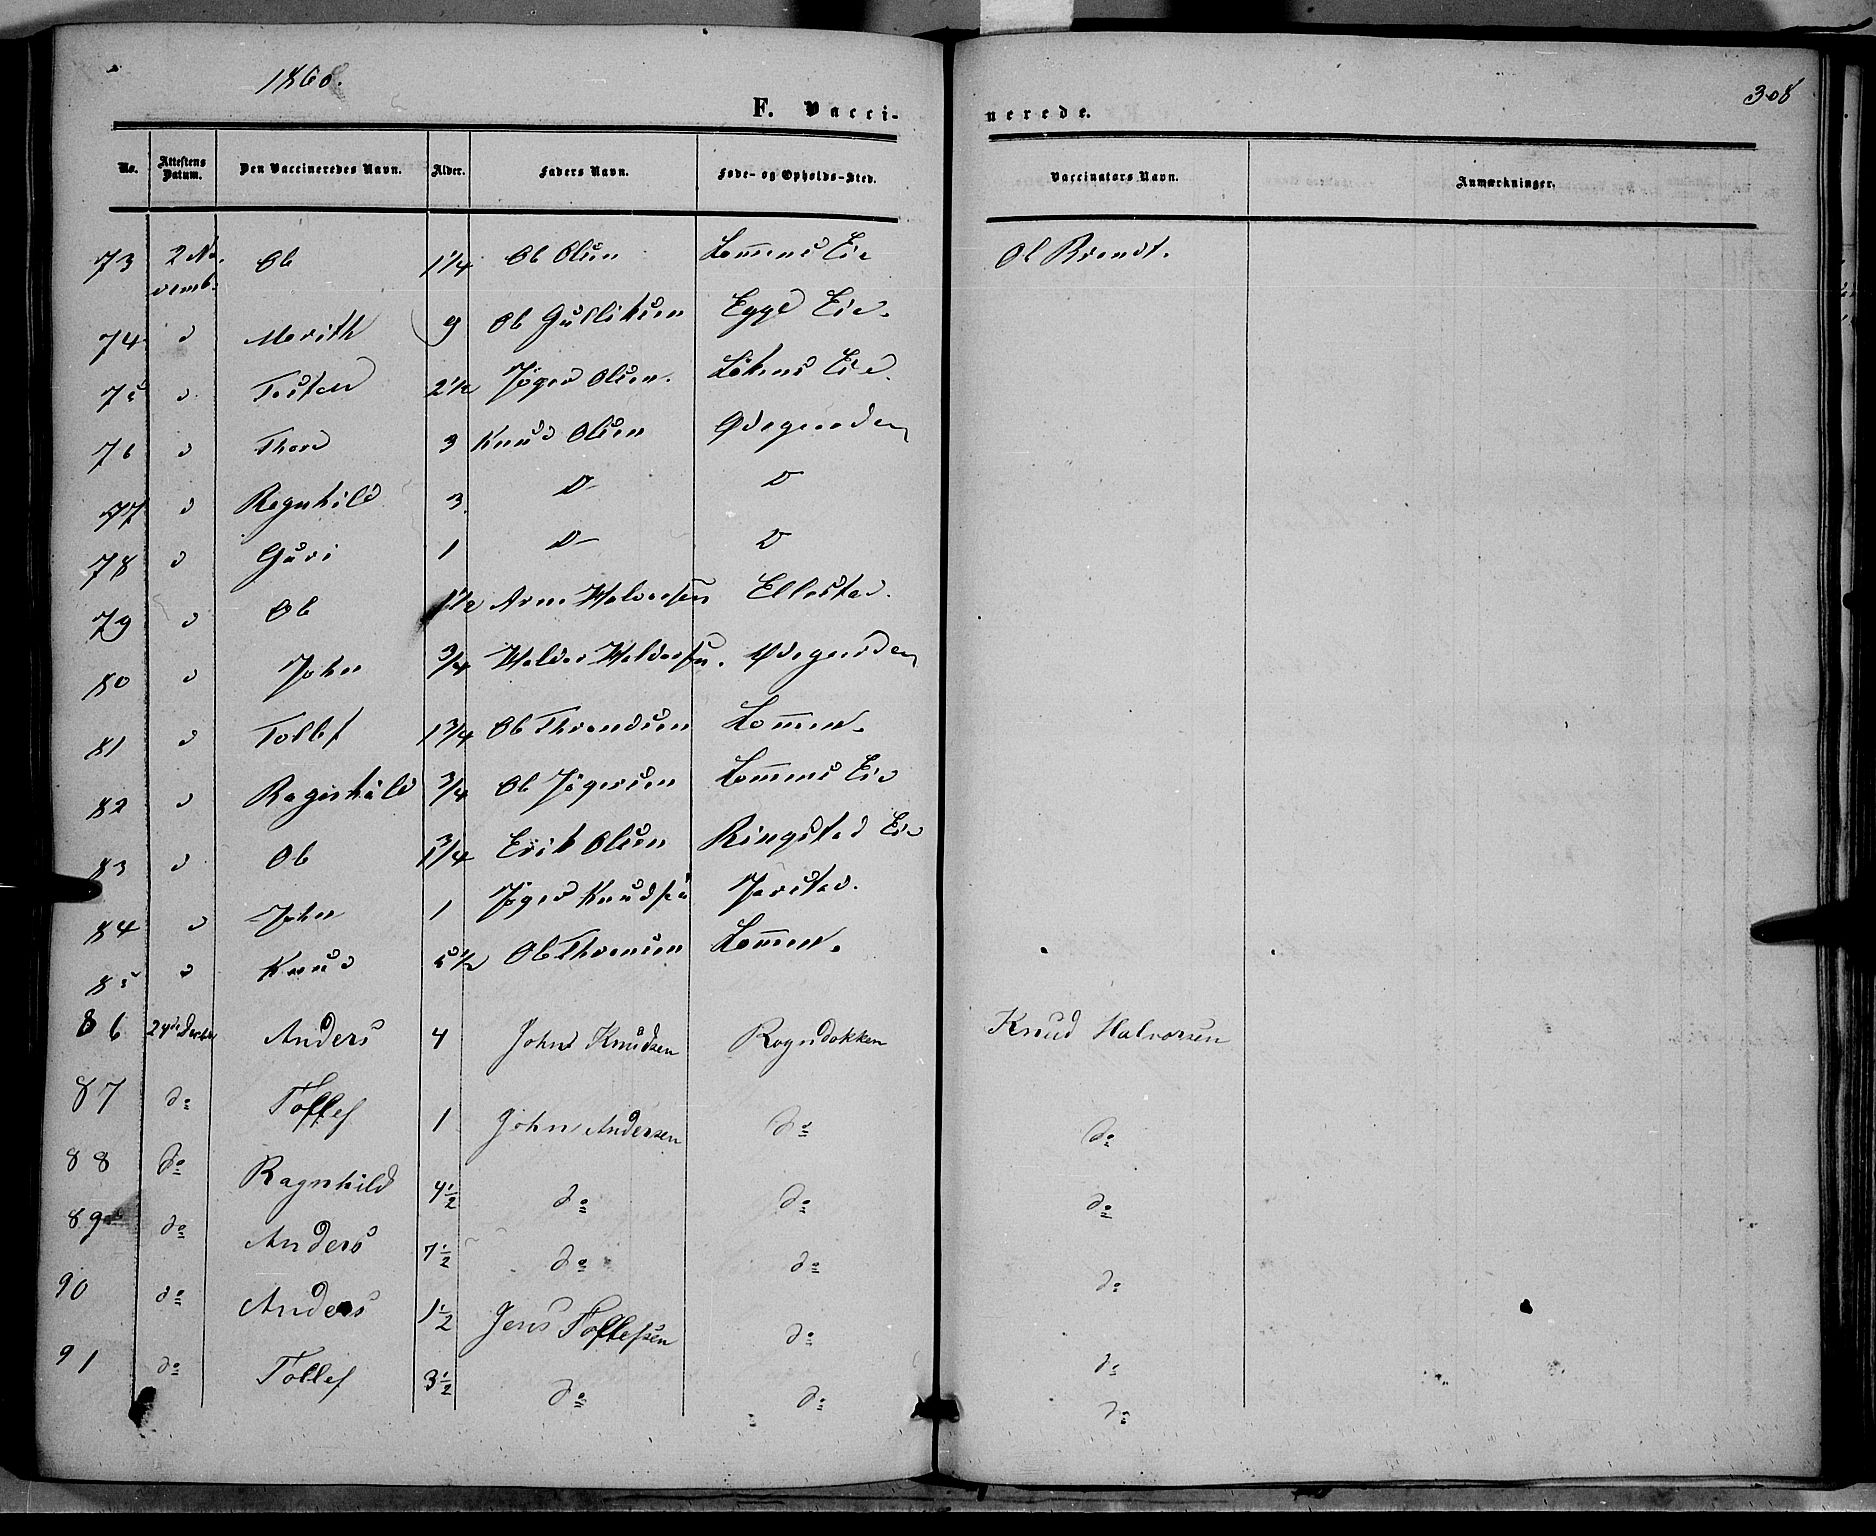 1860.
308
F. Vacci-
nerede.
No. Attestens Datum. Den Vaccineredes Navn. Alder. Faders Navn. Føde- og Opholds-Sted. Vaccinators Navn. Anmærkninger.
73 2 Novemb. Ole 1 1/4 Ole Olsen Lom̅ens Eie Ol Brandt.
74 " Marith 9 Ole Gulliksen Egge Eie.
75 " Tosten 2 1/2 Jøger Olsen. Løkens Eie.
76 " Thore 3 Knud Olsen Ødegaarden
77 " Ragnhild 3 D D
78 " Guri 1 D D
79 " Ole 1 1/2 Arne Halvorsen Ellestad.
80 " John 3/4 Halvor Halvorsen. Ødegaarden
81 " Tollef 1 3/4 Ole Throndsen Lom̅en.
82 " Ragnhild 3/4 Ole Jøgersen Lom̅ens Eie
83 " Ole 1 3/4 Erik Olsen Ringstad Eie
84 " John 1 Jøger Knudsen Jarstad.
85 " Knud 5 1/2 Ole Thoresen Lom̅en.
86 24de Decbr Anders 4 John Knudsen Rogndokken Knud Halvorsen
87 do Tollef 1 John Andersen do do
88 do Ragnhild 4 1/2 do do do
89 do Anders 7 1/2 do do do
90 do Anders 1 1/2 Jens Tollefsen do do
91 do Tollef 3 1/2 do do do